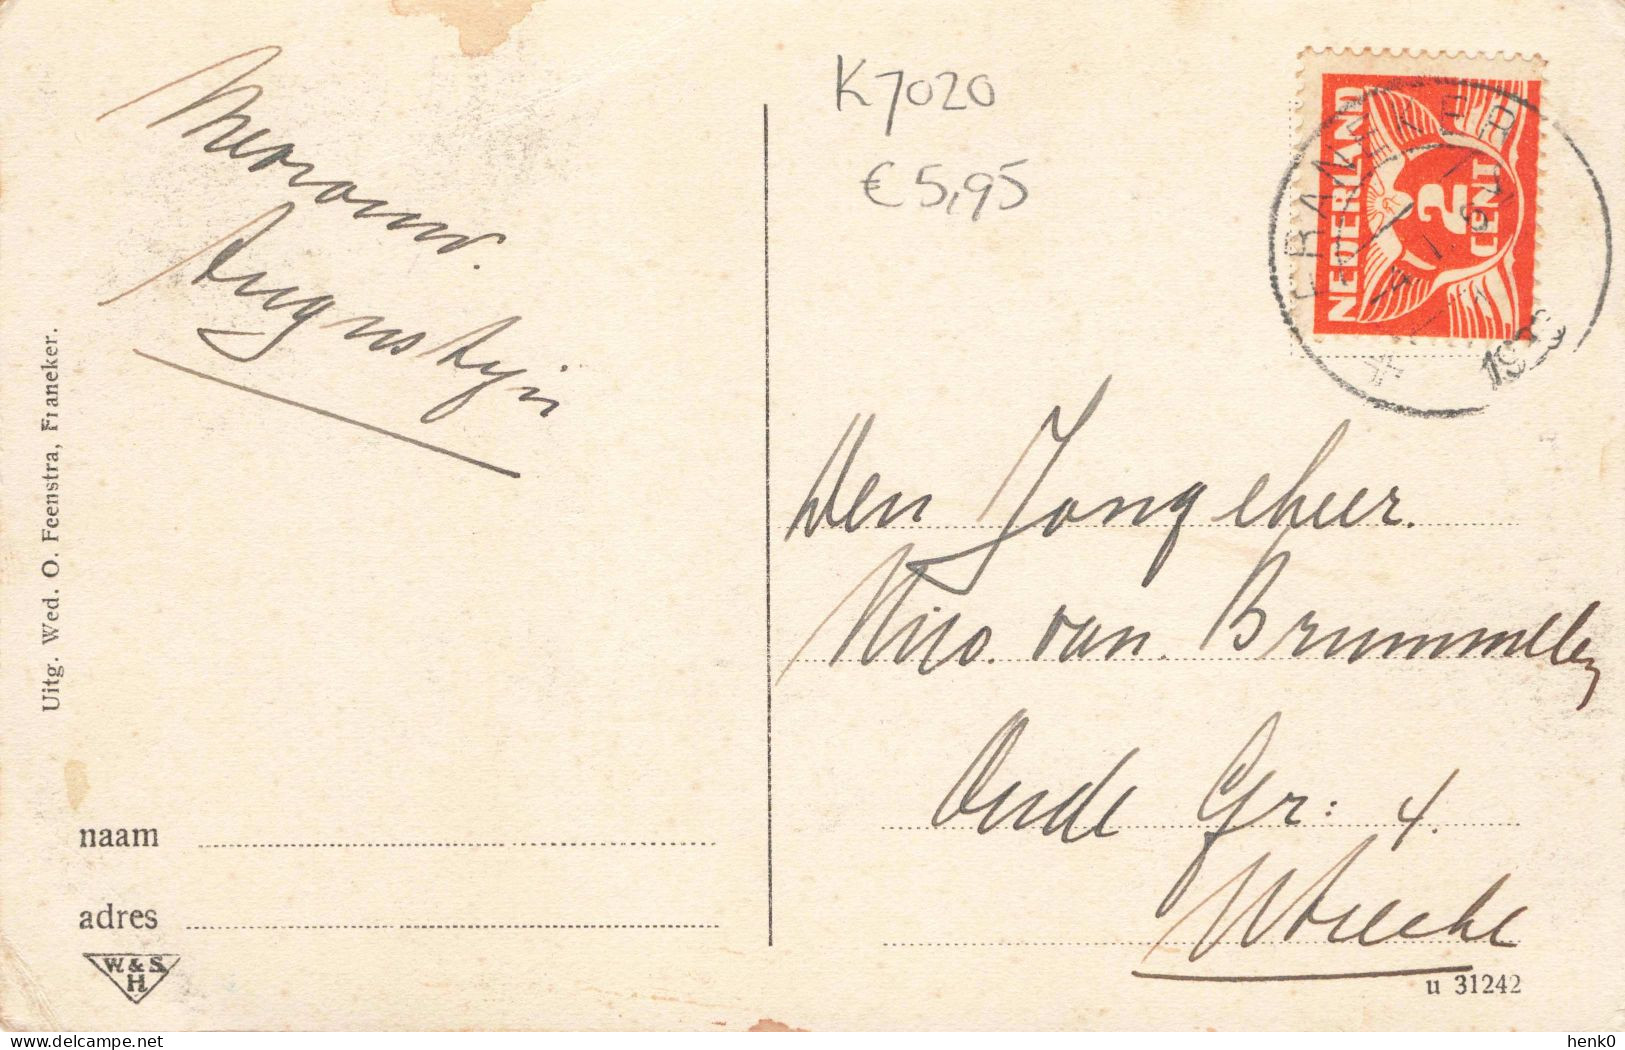 K7020
€5,95
NEDERLAND
2
CENT
FRANEKER
Den Jongeheer.
Nico. van. Brummelen
Oude Gr: 4.
Utrecht
Uitg. Wed. O. Feenstra, Franeker.
naam
adres
W. & S.
H
u 31242
delcampe.net
henk0